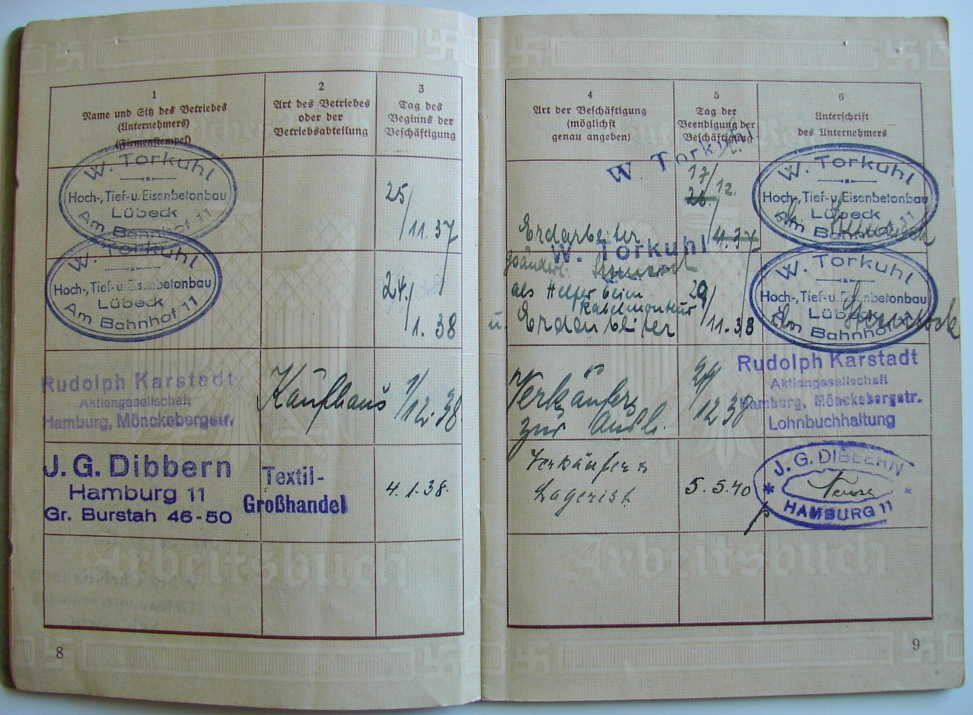 1
Name und Sitz des Betriebes
(Unternehmers)
(Firmenstempel)
2
Art des Betriebes
oder der
Betriebsabteilung
3
Tag des
Beginns der
Beschäftigung
W. Torkuhl
Hoch-, Tief- u. Eisenbetonbau
Lübeck
Am Bahnhof 11
25/11.37
W. Torkuhl
Hoch-, Tief- u. Eisenbetonbau
Lübeck
Am Bahnhof 11
24/1.38
Rudolph Karstadt
Aktiengesellschaft
Hamburg, Mönckebergstr.
Kaufhaus
1/12.38
J. G. Dibbern
Hamburg 11
Gr. Burstah 46-50
Textil-
Großhandel
4.1.38.
Arbeitsbuch
8
4
Art der Beschäftigung
(möglichst
genau angeben)
5
Tag der
Beendigung der
Beschäftigung
6
Unterschrift
des Unternehmers
W. Torkuhl
17/12.
Erdarbeiter
W. Torkuhl
Hoch-, Tief- u. Eisenbetonbau
Lübeck
Am Bahnhof 11
W. Torkuhl
als Helfer beim
Kabelmonteur
u. Erdarbeiter
29/11.38
W. Torkuhl
Hoch-, Tief- u. Eisenbetonbau
Lübeck
Am Bahnhof 11
Verkäufer
zur Aush.
12 38
Rudolph Karstadt
Aktiengesellschaft
Hamburg, Mönckebergstr.
Lohnbuchhaltung
Verkäufer
Lagerist
5.5.40
J. G. DIBBERN
HAMBURG 11
Arbeitsbuch
9